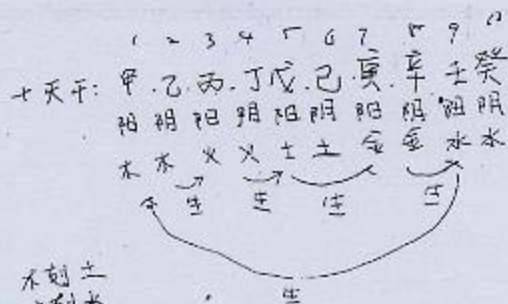 1 2 3 4 5 6 7 8 9 10
十天干: 甲.乙.丙.丁戊.己.寅.辛.壬癸
阳 阴 阳 阴 阳 阴 阳 阴 阳 阴
木 木 火 火 土 土 金 金 水 水
生 生 生 生
生
木刻土